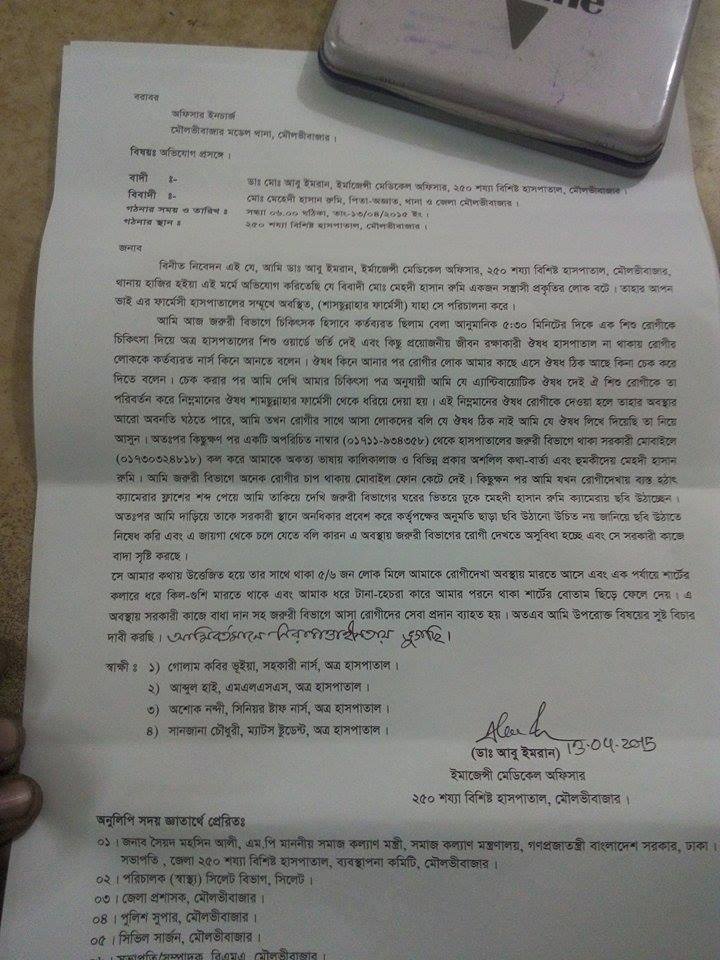 ine
বরাবর
অফিসার ইনচার্জ
মৌলভীবাজার মডেল থানা, মৌলভীবাজার।
বিষয়ঃ অভিযোগ প্রসঙ্গে।
বাদী ঃ- ডাঃ মোঃ আবু ইমরান, ইর্মাজেন্সী মেডিকেল অফিসার, ২৫০ শয্যা বিশিষ্ট হাসপাতাল, মৌলভীবাজার।
বিবাদী ঃ- মোঃ মেহেদী হাসান রুমি, পিতা-অজ্ঞাত, থানা ও জেলা মৌলভীবাজার।
গঠনার সময় ও তারিখ ঃ সন্ধ্যা ০৬.০০ ঘঠিকা, তাং-১৩/০৪/২০১৫ ইং।
গঠনার স্থান ঃ ২৫০ শয্যা বিশিষ্ট হাসপাতাল, মৌলভীবাজার।
জনাব
বিনীত নিবেদন এই যে, আমি ডাঃ আবু ইমরান, ইর্মাজেন্সী মেডিকেল অফিসার, ২৫০ শয্যা বিশিষ্ট হাসপাতাল, মৌলভীবাজার,
থানায় হাজির হইয়া এই মর্মে অভিযোগ করিতেছি যে বিবাদী মোঃ মেহেদী হাসান রুমি একজন সন্ত্রাসী প্রকৃতির লোক বটে। তাহার আপন
ভাই এর ফার্মেসী হাসপাতালের সম্মূখে অবস্থিত, (শামছুন্নাহার ফার্মেসী) যাহা সে পরিচালনা করে।
আমি আজ জরুরী বিভাগে চিকিত্সক হিসাবে কর্তব্যরত ছিলাম বেলা আনুমানিক ৫:৩০ মিনিটের দিকে এক শিশু রোগীকে
চিকিৎসা দিয়ে অত্র হাসপতালের শিশু ওয়ার্ডে ভর্তি দেই এবং কিছু প্রয়োজনীয় জীবন রক্ষাকারী ঔষধ হাসপাতাল না থাকায় রোগীর
লোককে কর্তব্যরত নার্স কিনে আনতে বলেন। ঔষধ কিনে আনার পর রোগীর লোক আমার কাছে এসে ঔষধ ঠিক আছে কিনা চেক করে
দিতে বলেন। চেক করার পর আমি দেখি আমার চিকিৎসা পত্র অনুযায়ী আমি যে এ্যান্টিবায়োটিক ঔষধ দেই ঐ শিশু রোগীকে তা
পরিবর্তন করে নিম্নমানের ঔষধ শামছুন্নাহার ফার্মেসী থেকে ধরিয়ে দেয়া হয়। এই নিম্নমানের ঔষধ রোগীকে দেওয়া হলে তাহার অবস্থার
আরো অবনতি ঘঠতে পারে, আমি তখন রোগীর সাথে আসা লোকদের বলি যে ঔষধ ঠিক নাই আমি যে ঔষধ লিখে দিয়েছি তা নিয়ে
আসুন। অতঃপর কিছুক্ষণ পর একটি অপরিচিত নাম্বার (০১৭১১-৯৩৪৩৫৮) থেকে হাসপাতালের জরুরী বিভাগে থাকা সরকারী মোবাইলে
(০১৭৩০৩২৪৮১৮) কল করে আমাকে অকত্য ভাষায় কালিকালাজ ও বিভিন্ন প্রকার অশলিল কথা-বার্তা এবং হুমকীদেয় মেহদী হাসান
রুমি। আমি জরুরী বিভাগে অনেক রোগীর চাপ থাকায় মোবাইল ফোন কেটে দেই। কিছুক্ষন পর আমি যখন রোগীদেখায় ব্যস্ত হঠাৎ
ক্যামেরার ফ্লাশের শব্দ পেয়ে আমি তাকিয়ে দেখি জরুরী বিভাগের ঘরের ভিতরে ঢুকে মেহদী হাসান রুমি ক্যামেরায় ছবি উঠাচ্ছেন।
অতঃপর আমি দাড়িয়ে তাকে সরকারী স্থানে অনধিকার প্রবেশ করে কর্তৃপক্ষের অনুমতি ছাড়া ছবি উঠানো উচিত নয় জানিয়ে ছবি উঠাতে
নিষেধ করি এবং এ জায়গা থেকে চলে যেতে বলি কারন এ অবস্থায় জরুরী বিভাগের রোগী দেখতে অসুবিধা হচ্ছে এবং সে সরকারী কাজে
বাদা সৃষ্টি করছে।
সে আমার কথায় উত্তেজিত হয়ে তার সাথে থাকা ৫/৬ জন লোক মিলে আমাকে রোগীদেখা অবস্থায় মারতে আসে এবং এক পর্যায়ে শার্টের
কলারে ধরে কিল-গুশি মারতে থাকে এবং আমাক ধরে টানা-হেচরা করে আমার পরনে থাকা শার্টের বোতাম ছিড়ে ফেলে দেয়। এ
অবস্থায় সরকারী কাজে বাধা দান সহ জরুরী বিভাগে আসা রোগীদের সেবা প্রদান ব্যাহত হয়। অতএব আমি উপরোক্ত বিষয়ের সুষ্ট বিচার
দাবী করছি। আমি বর্তমানে নিরাপত্তাহীনতায় ভুগছি।
স্বাক্ষী ঃ ১) গোলাম কবির ভূইয়া, সহকারী নার্স, অত্র হাসপাতাল।
২) আব্দুল হাই, এমএলএসএস, অত্র হাসপাতাল।
৩) অশোক নন্দী, সিনিয়র ষ্টাফ নার্স, অত্র হাসপাতাল।
৪) সানজানা চৌধুরী, ম্যাটস ষ্টুডেন্ট, অত্র হাসপাতাল।
(ডাঃ আবু ইমরান) 13-04-2015
ইমাজেন্সী মেডিকেল অফিসার
২৫০ শয্যা বিশিষ্ট হাসপাতাল, মৌলভীবাজার।
অনুলিপি সদয় জ্ঞাতার্থে প্রেরিতঃ
০১। জনাব সৈয়দ মহসিন আলী, এম.পি মাননীয় সমাজ কল্যাণ মন্ত্রী, সমাজ কল্যাণ মন্ত্রণালয়, গণপ্রজাতন্ত্রী বাংলাদেশ সরকার, ঢাকা।
সভাপতি, জেলা ২৫০ শয্যা বিশিষ্ট হাসপাতাল, ব্যবস্থাপনা কমিটি, মৌলভীবাজার।
০২। পরিচালক (স্বাস্থ্য) সিলেট বিভাগ, সিলেট।
০৩। জেলা প্রশাসক, মৌলভীবাজার।
০৪। পুলিশ সুপার, মৌলভীবাজার।
০৫। সিভিল সার্জন, মৌলভীবাজার।
০৬। সভাপতি/সম্পাদক, বিএমএ, মৌলভীবাজার।